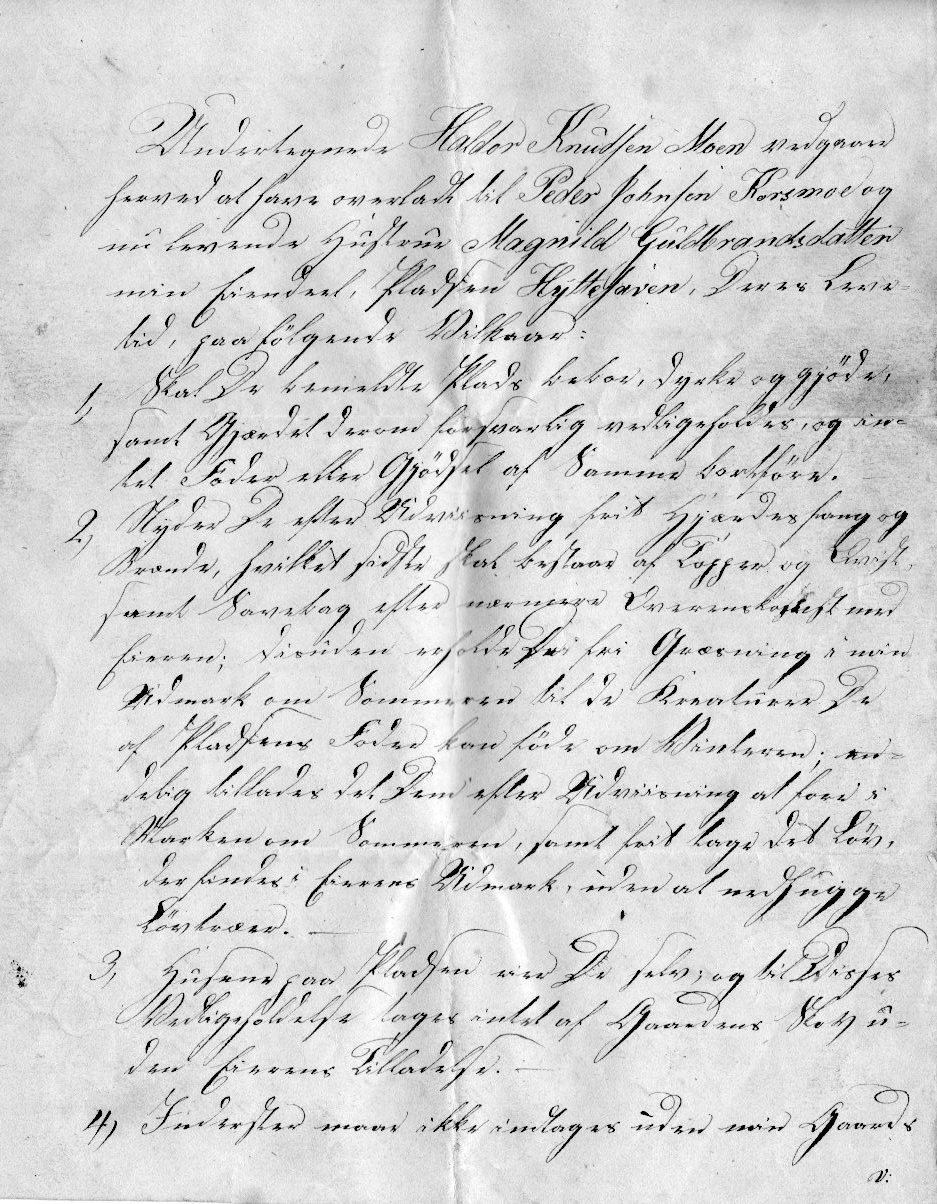 Undertegnede Haldor Knudsen Moen vedgaaer
herved at have overladt til Peder Johnsen Korsmoe og
nu levende Hustrue Magnild Guldbrandsdatter
min Eiendeel, Pladsen Hyttehaven, Deres Leve-
tid, paa følgende Vilkaar:
1, Skal De bemeldte Plads beboe, dyrke og gjøde,
samt Gjærdet derom forsvarlig vedligeholdes, og in-
tet Foder eller Gjødsel af Samme bortføre.
2, Nyder De efter Udviisning frit Hjærdesfang og
Brænde, hvilket sidste skal bestaae af Topper og Qvist,
samt Savebag efter nærmere Overenskomst med
Eieren; desuden erholde De fri Græsning i min
Udmark om Sommeren til de Kreaturer De
af Pladsens Foder kan føde om Vinteren; en-
delig tillades det Dem efter Udviisning at fore i
Marken om Sommeren, samt frit tage det Løv,
der findes i Eierens Udmark, uden at nedhugge
Løvtræer. —
3, Husene paa Pladsen eier De selv; og til Disses
Vedligeholdelse tages intet af Gaardens Skov u-
den Eierens Tilladelse. —
4, Inderster maae ikke indtages uden min Gaards
v: